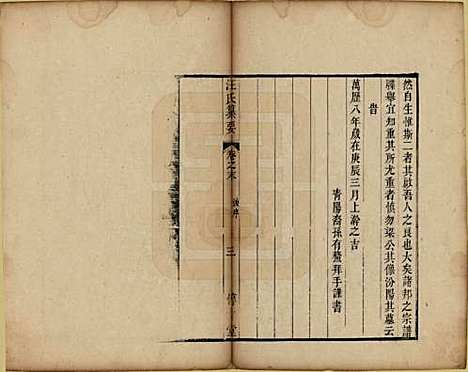 然自生惟斯二者其啟吾人之良也大矣諸邦之宗譜
牒舉宜知重其所尤重者慎勿梁公其像汾陽其墓云
旹
萬歷八年歲在庚辰三月上澣之吉
青陽裔孫有螯拜手謹書
汪氏纂要
卷之末
後序
三
堂